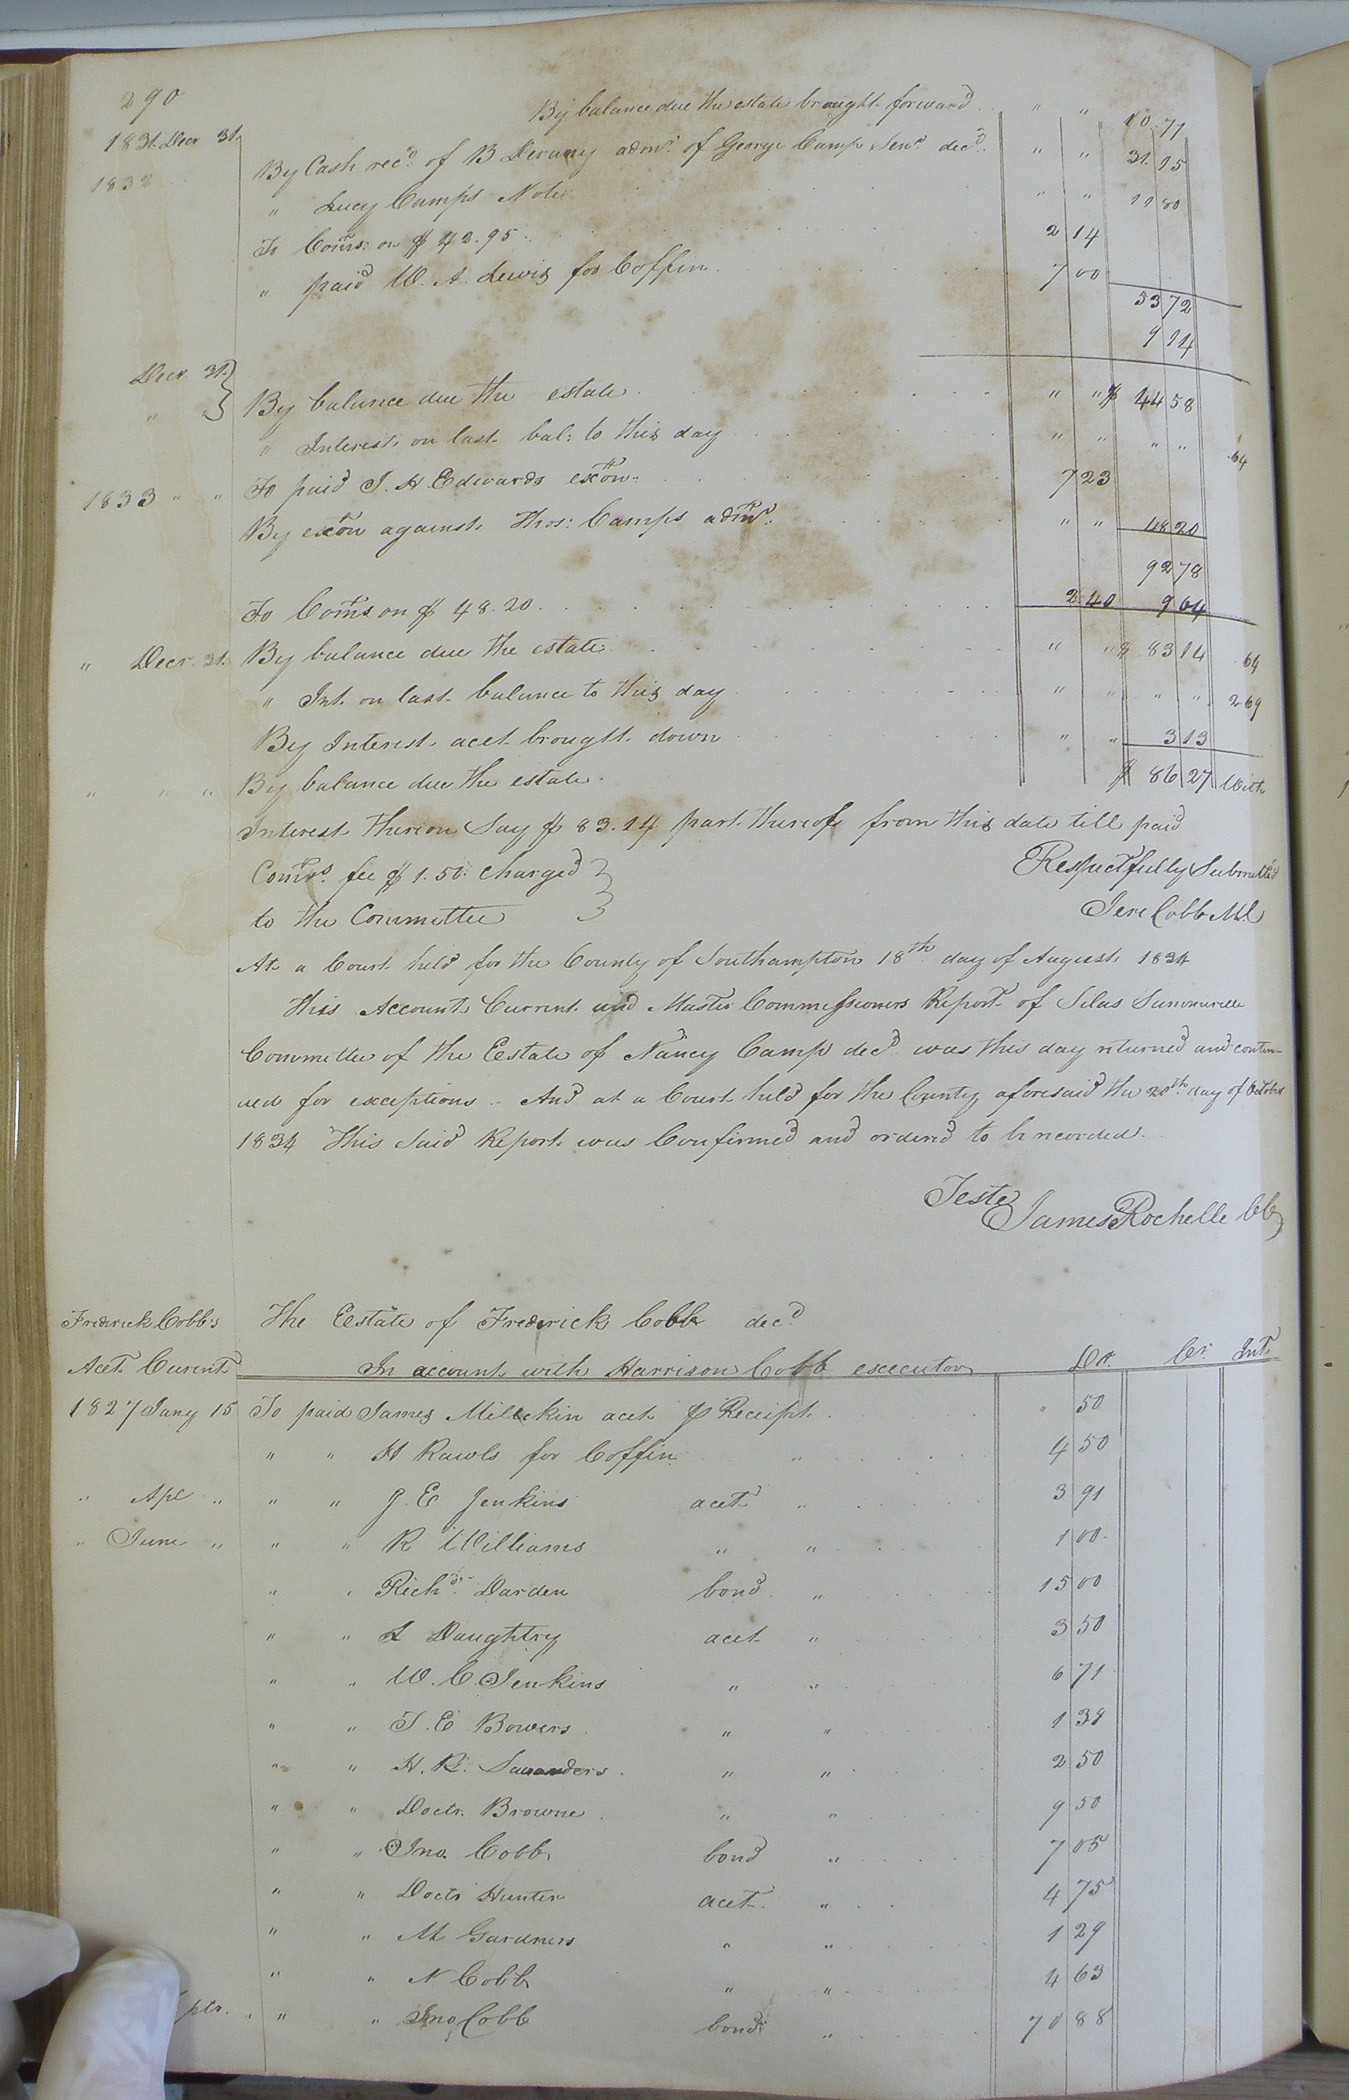 290
By balance due the estate brought forward " " 10 77
1831 Decr 31. By Cash recd. of B Devany admr. of George Camp Senr. decd. " " 31. 15
1832 " Lucy Camps Note " " 11 80
To Coms: on $ 42.95 2 14
" paid W. A. Lewis for Coffin 7 00
53 72
9 14
Decr 31. } By balance due the estate " " $ 44 58
" " Interest on last bal: to this day " " " " .64
1833 " " To paid J. H Edwards exon. 7 23
By exon against Thos: Camps admr. " " 48 20
92 78
To Coms on $ 48.20. 2 40 9 64
" Decr. 31. By balance due the estate " " $ 83 14 .64
" Int. on last balance to this day " " " " 2.69
By Interest acct brought down " " 3 13
" " " By balance due the estate $ 86 27 With
Interest thereon Say $ 83.14 part thereof from this date till paid
Comrs. fee $ 1.50 charged } Respectfully Submitted
to the Committee Jere Cobb
At a Court held for the County of Southampton 18th day of August 1834
This Account Current and Master Commissioners Report of Silas Summerell
Committee of the Estate of Nancy Camp decd was this day returned and contin-
ued for exceptions. And at a Court held for the County aforesaid the 20th day of October
1834 This Said Report was Confirmed and ordered to be recorded.
Teste
James Rochelle CC
Frederick Cobb's The Estate of Frederick Cobb decd
Acct Curent In account with Harrison Cobb executor Dr. Cr. Int.
1827 Jany 15 To paid James Millekin acct p Receipt " 50
" " H Rawls for Coffin " 4 50
" Apl " " " J. E Jenkins acct " 3 91
" June " " " R Williams " " 1 00
" " Richd. Darden bond " 15 00
" " L Daughtry acct " 3 50
" " W. C. Jenkins " " 6 71
" " T. E Bowers " " 1 38
" " H. R. Saunders " " 2 50
" " Doctr. Browne " " 9 50
" " Jno. Cobb bond " 7 05
" " Doctr Hunter acct " 4 75
" " M Gardners " " 1 29
" " N Cobb " " 4 63
" " Jno Cobb bond " 70 88